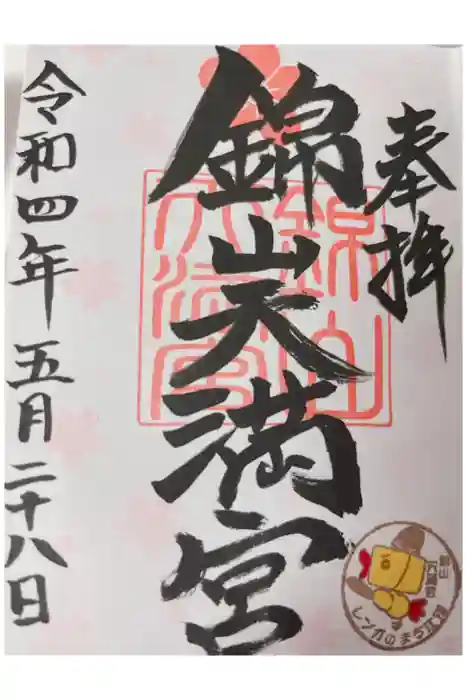 奉拝
錦山天満宮
令和四年五月二十八日
錦山
天満宮
レンガのまち江別